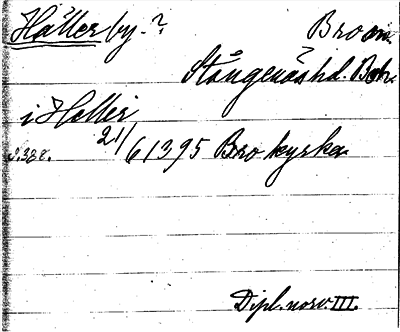 Hällerby? Bro sn.
Stångenäs hd. Boh.
i Heller
s. 388. 21/6 1395 Bro kyrka
Dipl. norv. III.